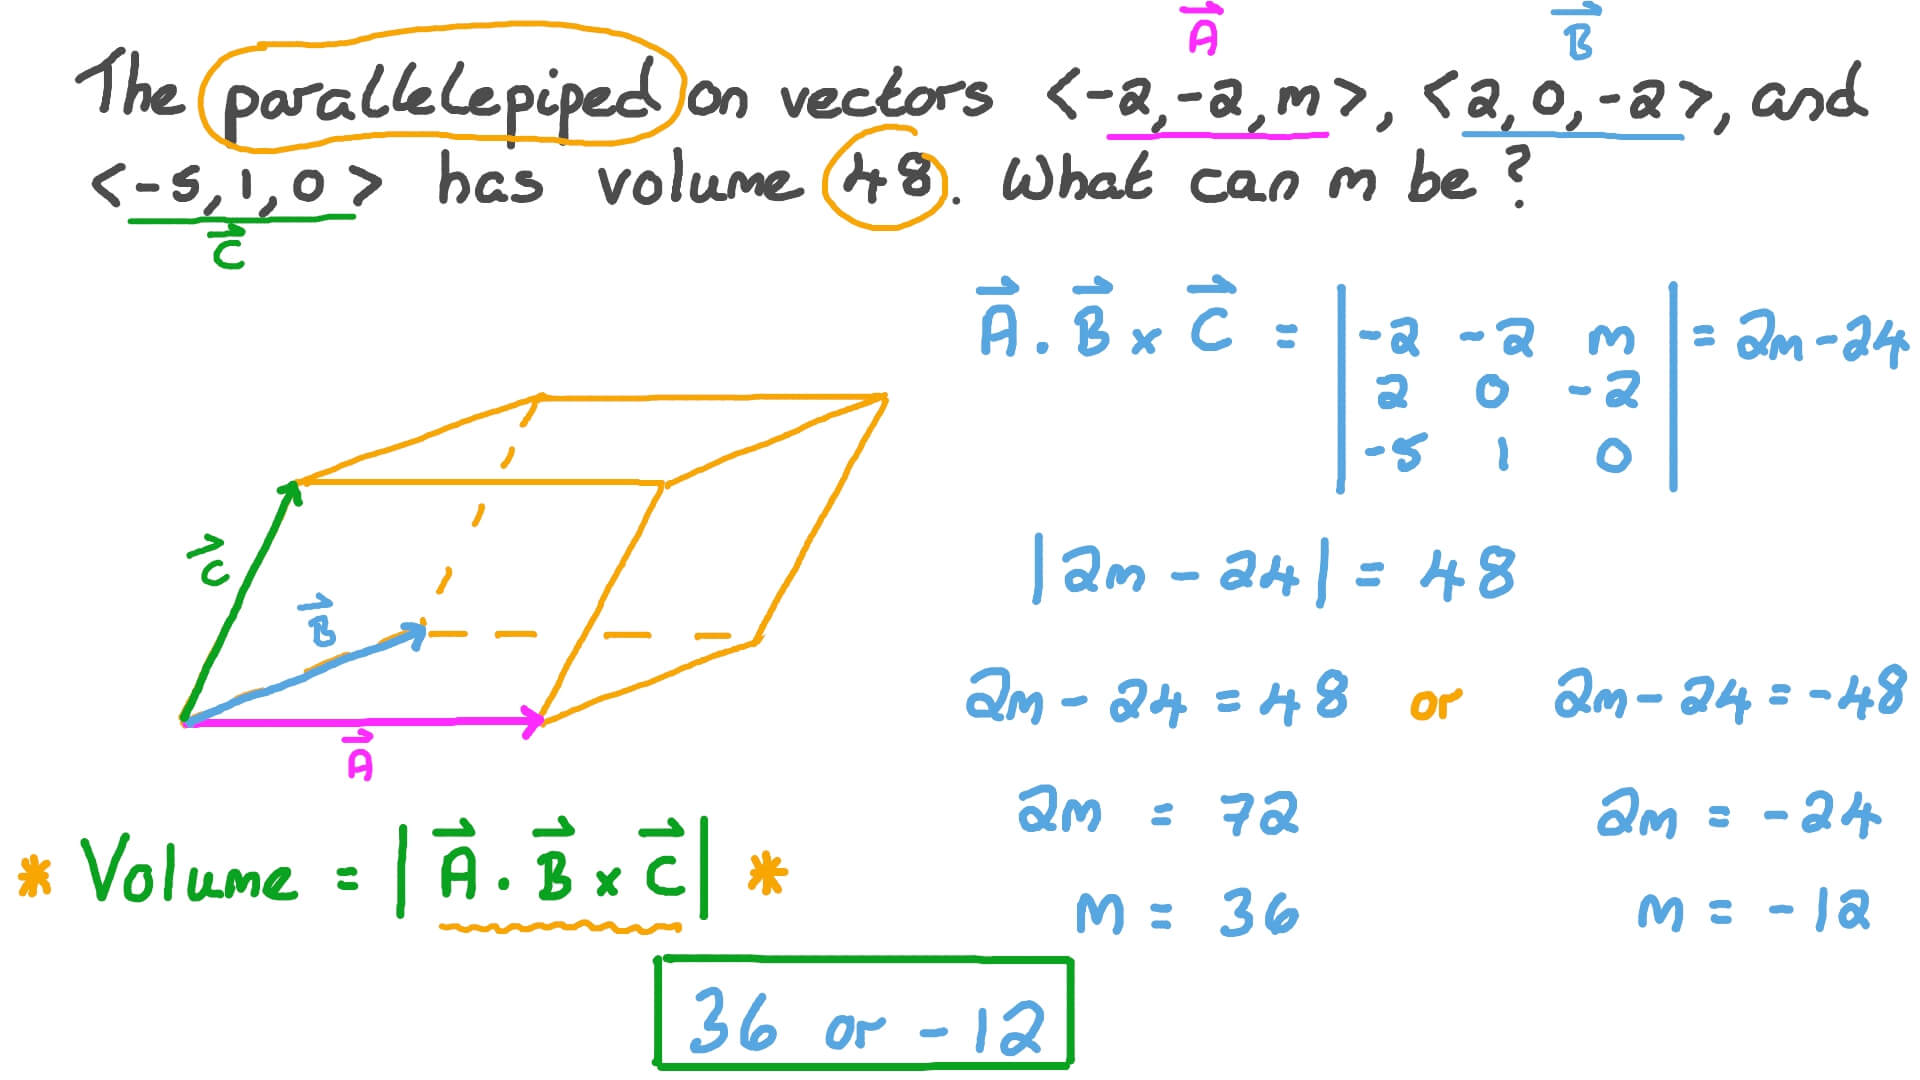 A B
The parallelepiped on vectors <-2,-2,m>, <2,0,-2>, and
<-5,1,0> has volume 48. What can m be?
C
A . B x C = | -2 -2 m | = 2m-24
2 0 -2
-5 1 0
|2m - 24| = 48
C
B
A
2m - 24 = 48 or 2m - 24 = -48
2m = 72 2m = -24
m = 36 m = -12
* Volume = | A . B x C | *
36 or -12